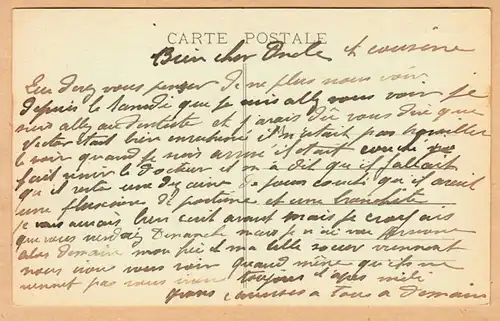 CARTE POSTALE
Bien cher Oncle et cousine
Que devez vous penser de ne plus nous voir
depuis le samedi que je suis allez vous voir je
suis allez au dentiste et j'avais dû vous dire que
Victor était bien enrhumé il n'était pas
le voir quand je suis arrivé il était couché
fait venir le docteur il m'a dit qu'il fallait
qu'il reste une dizaine de jours couché qu'il avait
une fluxion de poitrine et une bronchite
je vous aurais bien écrit avant mais je croyais
que vous Dimanche mais je n'ai vu Personne
alors demain mon et ma belle sœur viennent
nous vous voir quand même qu'ils ne
vennent pas vous toujours d'après midi
caresses a tous a demain